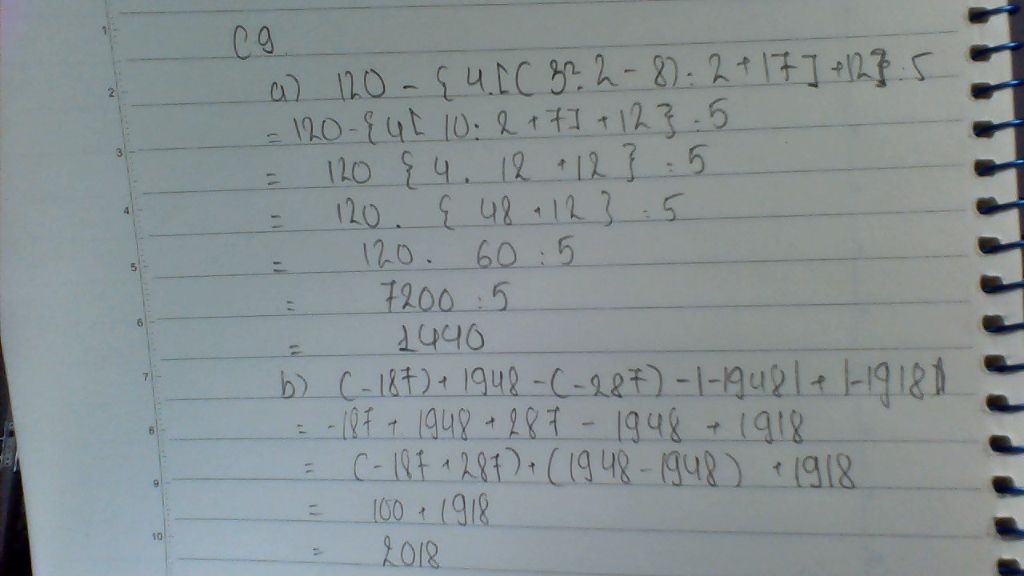 C9
a) 120 - { 4.[( 3². 2 - 8) : 2 + 17] + 12} : 5
= 120 - {4[ 10 : 2 + 7] + 12 } : 5
= 120 { 4 . 12 + 12 } : 5
= 120 . { 48 + 12 } : 5
= 120 . 60 : 5
= 7200 : 5
= 1440
b) (-187) + 1948 - (-287) - |-1948| + |-1918|
= -187 + 1948 + 287 - 1948 + 1918
= (-187 + 287) + (1948 - 1948) + 1918
= 100 + 1918
= 2018
1
2
3
4
5
6
7
8
9
10